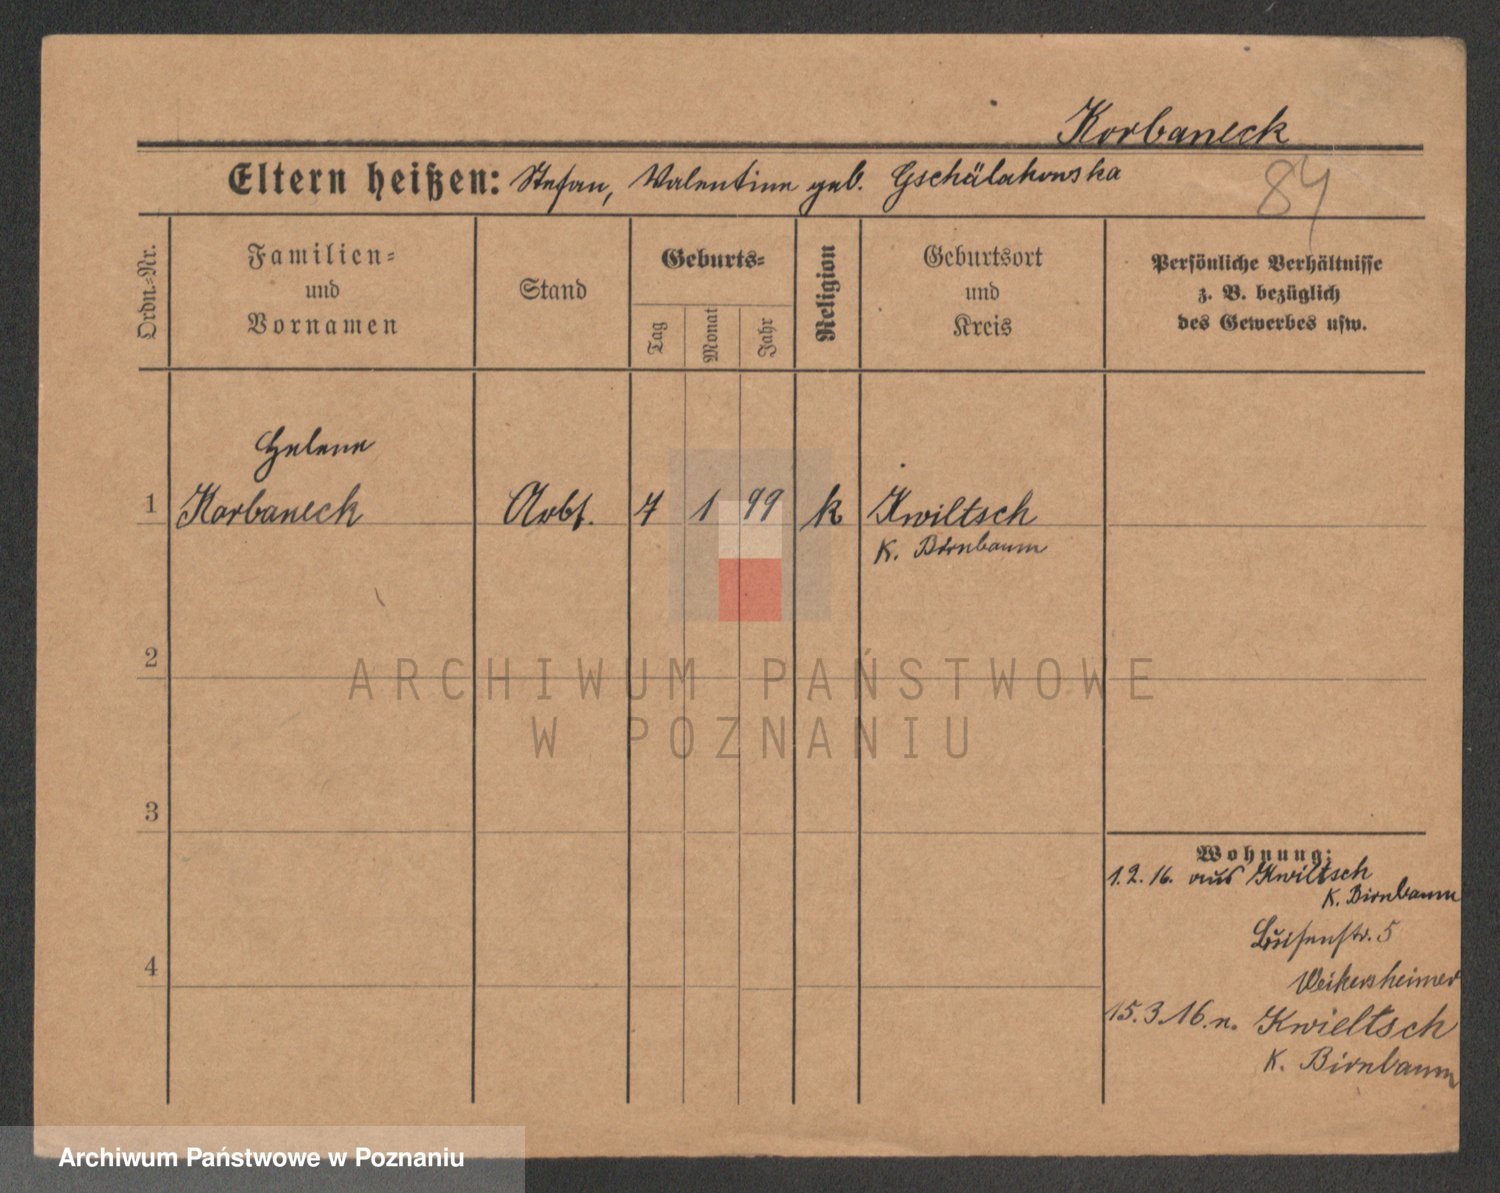 Korbaneck
Eltern heißen: Stefan, Valentine geb. Gschälakowska
84
Ordn.-Nr.
Familien-
und
Vornamen
Stand
Geburts-
Tag
Monat
Jahr
Religion
Geburtsort
und
Kreis
Persönliche Verhältnisse
z. B. bezüglich
des Gewerbes usw.
Helene
1 Korbaneck Arbt. 4 1 99 k Kwiltsch
K. Birnbaum
2
ARCHIWUM PAŃSTWOWE
W POZNANIU
3
Wohnung:
1.2.16. aus Kwiltsch
K. Birnbaum
Luisenstr. 5
4
Weikersheimer
15.3.16. n. Kwieltsch
K. Birnbaum
Archiwum Państwowe w Poznaniu